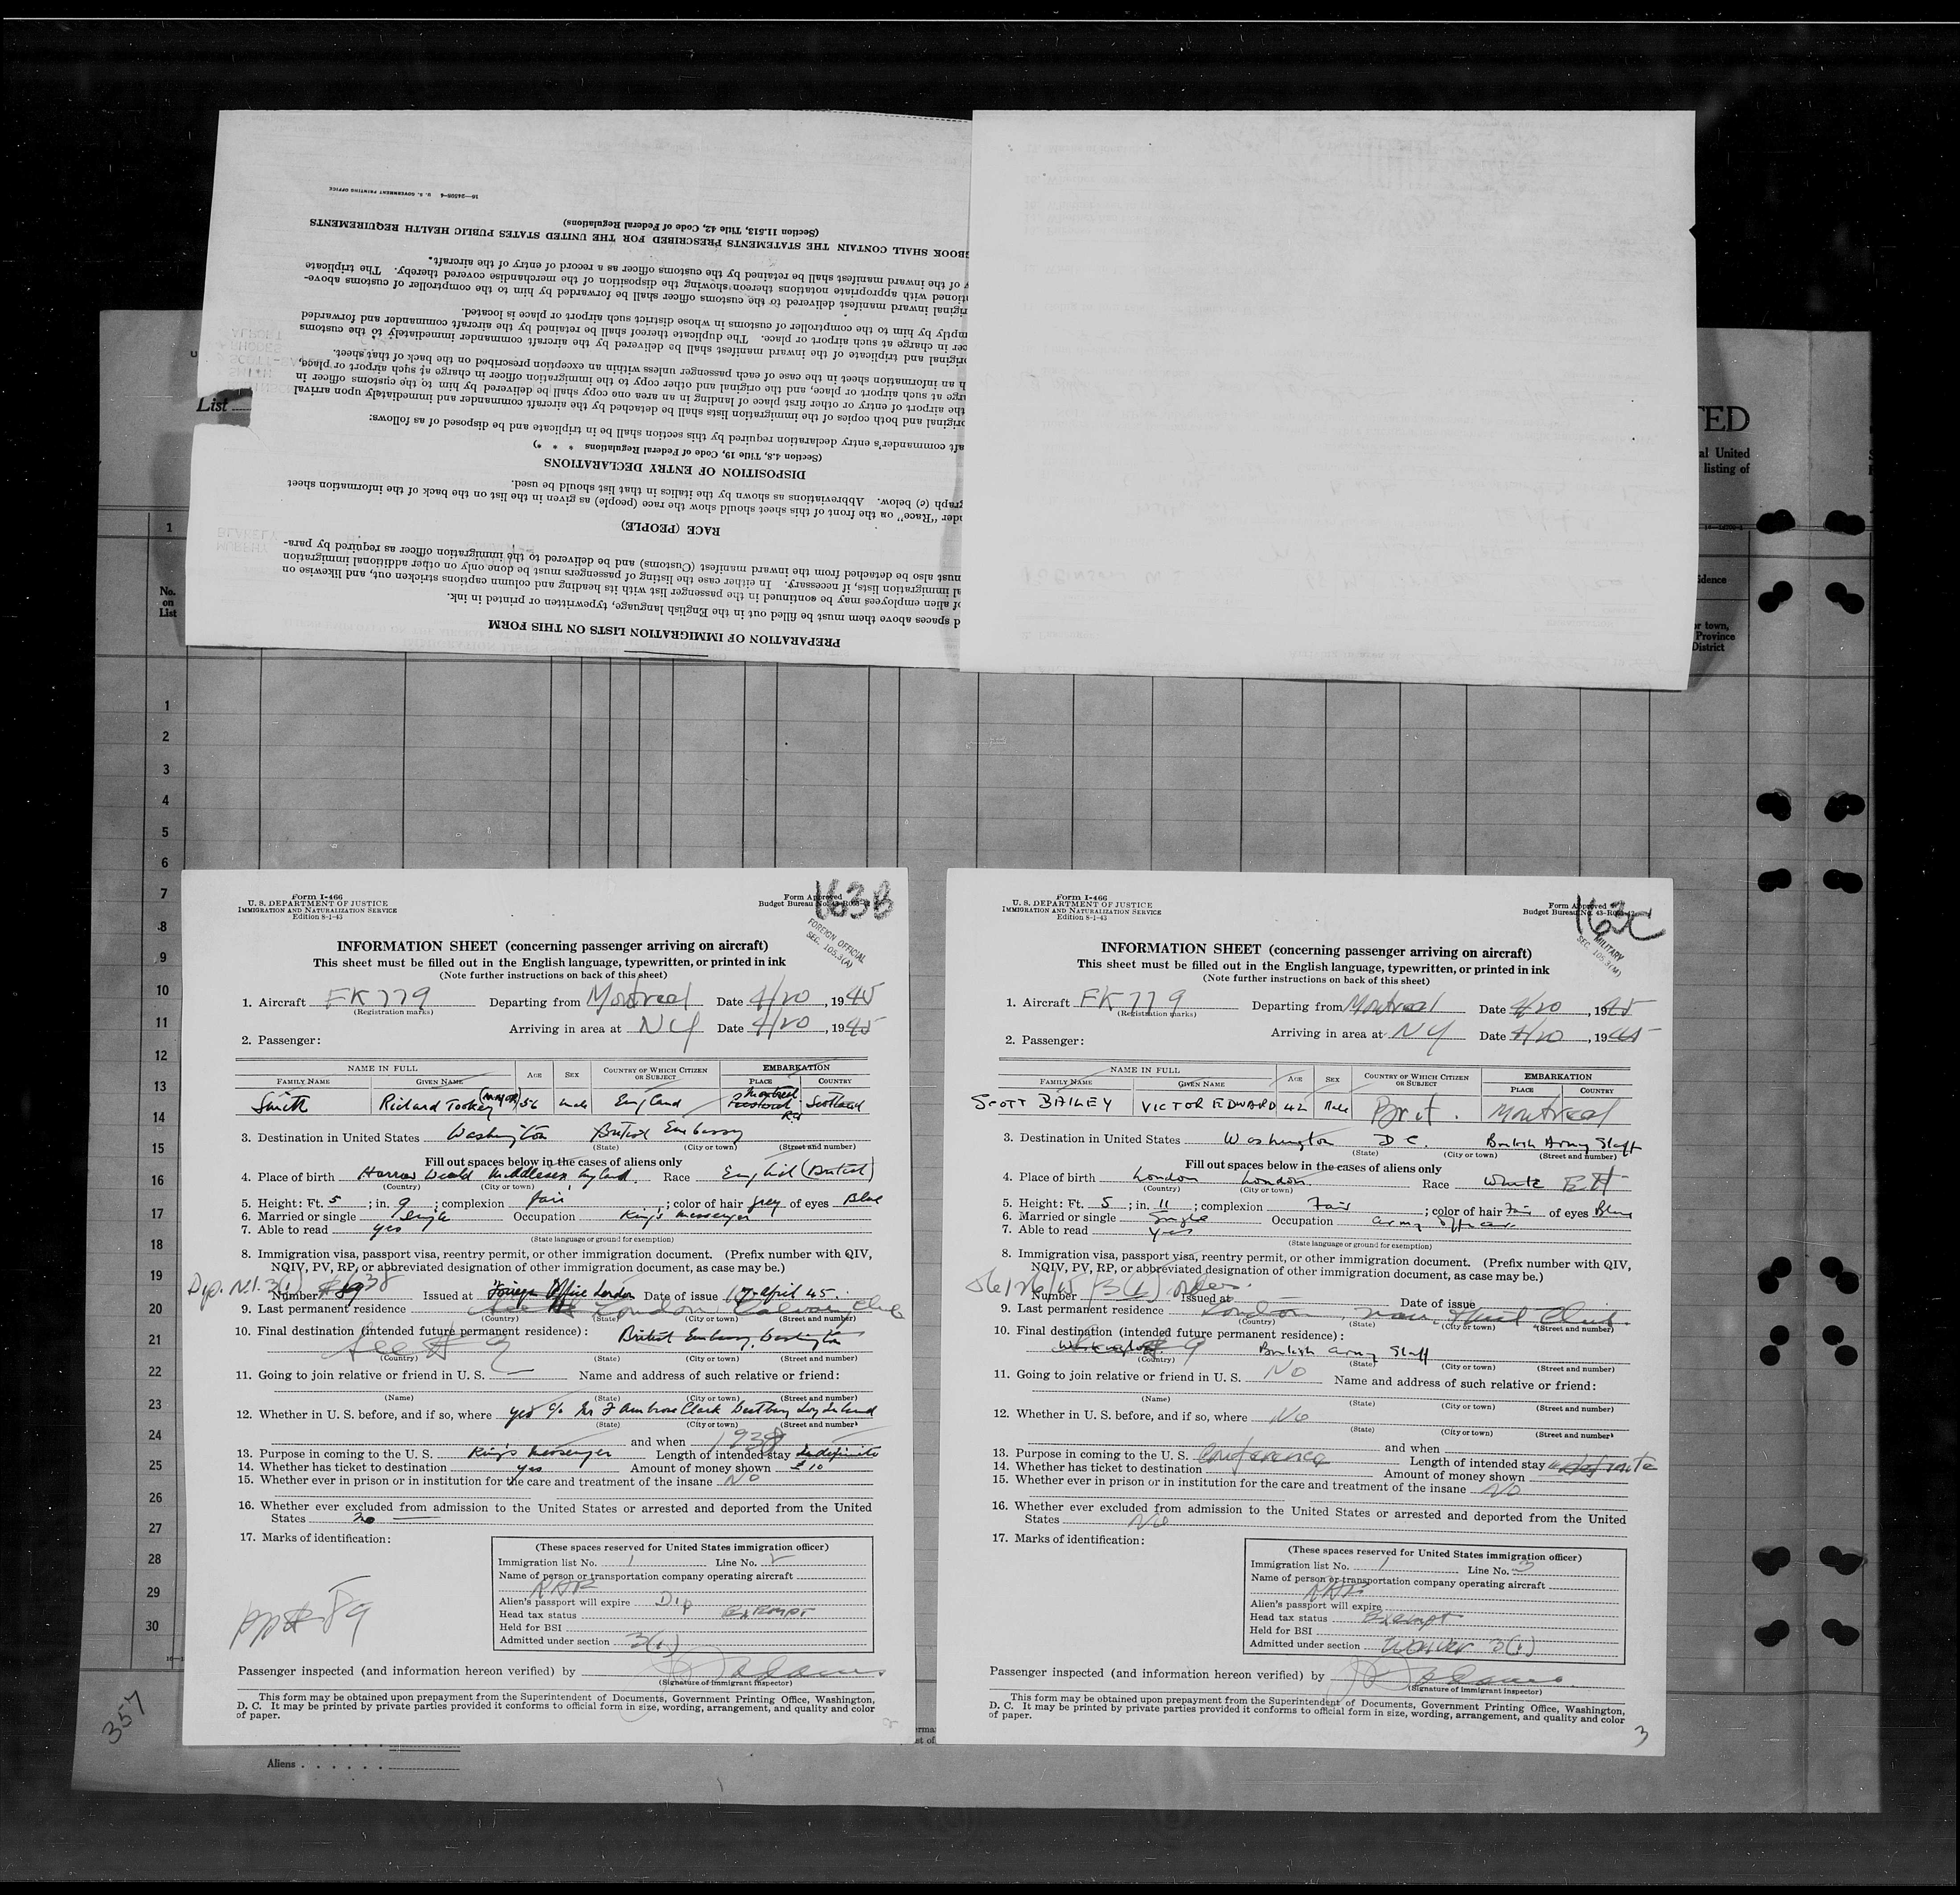 16—24508-4 U. S. GOVERNMENT PRINTING OFFICE
(Section 11.513, Title 42, Code of Federal Regulations)
GBOOK SHALL CONTAIN THE STATEMENTS PRESCRIBED FOR THE UNITED STATES PUBLIC HEALTH REQUIREMENTS
y of the inward manifest shall be retained by the customs officer as a record of entry of the aircraft.
tioned with appropriate notations thereon showing the disposition of the merchandise covered thereby. The triplicate
riginal inward manifest delivered to the customs officer shall be forwarded by him to the comptroller of customs above-
mptly by him to the comptroller of customs in whose district such airport or place is located.
cer in charge at such airport or place. The duplicate thereof shall be retained by the aircraft commander and forwarded
original and triplicate of the inward manifest shall be delivered by the aircraft commander immediately to the customs
h an information sheet in the case of each passenger unless within an exception prescribed on the back of that sheet.
arge at such airport or place, and the original and other copy to the immigration officer in charge at such airport or place,
the airport of entry or other first place of landing in an area one copy shall be delivered by him to the customs officer in
original and both copies of the immigration lists shall be detached by the aircraft commander and immediately upon arrival
aft commander's entry declaration required by this section shall be in triplicate and be disposed of as follows:
(Section 4.8, Title 19, Code of Federal Regulations * * *)
DISPOSITION OF ENTRY DECLARATIONS
graph (c) below. Abbreviations as shown by the italics in that list should be used.
nder "Race" on the front of this sheet should show the race (people) as given in the list on the back of the information sheet
RACE (PEOPLE)
must also be detached from the inward manifest (Customs) and be delivered to the immigration officer as required by para-
al immigration lists, if necessary. In either case the listing of passengers must be done only on other additional immigration
of alien employees may be continued in the passenger list with its heading and column captions stricken out, and likewise on
d spaces above them must be filled out in the English language, typewritten or printed in ink.
PREPARATION OF IMMIGRATION LISTS ON THIS FORM
List
TED
al United
listing of
idence
or town,
Province
District
1
No.
on
List
1
2
3
4
5
6
7
8
9
10
11
12
13
14
15
16
17
18
19
20
21
22
23
24
25
26
27
28
29
30
357
Aliens
Form I-466
U. S. DEPARTMENT OF JUSTICE
IMMIGRATION AND NATURALIZATION SERVICE
Edition 8-1-43
Form Approved
Budget Bureau No. 43-R065-42
163B
FOREIGN OFFICIAL
SEC. 105.3(A)
INFORMATION SHEET (concerning passenger arriving on aircraft)
This sheet must be filled out in the English language, typewritten, or printed in ink
(Note further instructions on back of this sheet)
1. Aircraft FK 779 Departing from Montreal Date 4/20, 1945
(Registration marks)
Arriving in area at NY Date 4/20, 1945
2. Passenger:
NAME IN FULL AGE SEX COUNTRY OF WHICH CITIZEN OR SUBJECT EMBARKATION
FAMILY NAME GIVEN NAME PLACE COUNTRY
Smith Richard Tookey (Major) 56 male England Montreal Prestwick Scotland
3. Destination in United States Washington British Embassy
(State) (City or town) (Street and number)
Fill out spaces below in the cases of aliens only
4. Place of birth Harrow Weald Middlesex England. Race English (British)
(Country) (City or town)
5. Height: Ft. 5; in. 9; complexion fair; color of hair grey of eyes Blue
6. Married or single Single Occupation King's Messenger
7. Able to read yes
(State language or ground for exemption)
8. Immigration visa, passport visa, reentry permit, or other immigration document. (Prefix number with QIV,
NQIV, PV, RP, or abbreviated designation of other immigration document, as case may be.)
Number Issued at Foreign Office London Date of issue 17 April 45.
9. Last permanent residence London
(Country) (State) (City or town) (Street and number)
10. Final destination (intended future permanent residence):
See # 9 British Embassy, Washington
(Country) (State) (City or town) (Street and number)
11. Going to join relative or friend in U. S. Name and address of such relative or friend:
(Name) (State) (City or town) (Street and number)
12. Whether in U. S. before, and if so, where yes c/o Mr F Ambrose Clark Westbury Long Island
(State) (City or town) (Street and number)
and when 1938
13. Purpose in coming to the U. S. King's Messenger Length of intended stay Indefinite
14. Whether has ticket to destination yes Amount of money shown £10
15. Whether ever in prison or in institution for the care and treatment of the insane NO
16. Whether ever excluded from admission to the United States or arrested and deported from the United
States no
17. Marks of identification:
pp# 89
(These spaces reserved for United States immigration officer)
Immigration list No. 1 Line No. 2
Name of person or transportation company operating aircraft
Alien's passport will expire Dip
Head tax status Exempt
Held for BSI
Admitted under section 3(1)
Passenger inspected (and information hereon verified) by Adams
(Signature of immigrant inspector)
This form may be obtained upon prepayment from the Superintendent of Documents, Government Printing Office, Washington,
D. C. It may be printed by private parties provided it conforms to official form in size, wording, arrangement, and quality and color
of paper.
Form I-466
U. S. DEPARTMENT OF JUSTICE
IMMIGRATION AND NATURALIZATION SERVICE
Edition 8-1-43
Form Approved
Budget Bureau No. 43-R065-42
163C
MILITARY
SEC. 105.3(M)
INFORMATION SHEET (concerning passenger arriving on aircraft)
This sheet must be filled out in the English language, typewritten, or printed in ink
(Note further instructions on back of this sheet)
1. Aircraft FK 779 Departing from Montreal Date 4/20, 1945
(Registration marks)
Arriving in area at NY Date 4/20, 1945
2. Passenger:
NAME IN FULL AGE SEX COUNTRY OF WHICH CITIZEN OR SUBJECT EMBARKATION
FAMILY NAME GIVEN NAME PLACE COUNTRY
SCOTT BAILEY VICTOR EDWARD 42 Male Brit. Montreal
3. Destination in United States Washington D C. British Army Staff
(State) (City or town) (Street and number)
Fill out spaces below in the cases of aliens only
4. Place of birth London London. Race White
(Country) (City or town)
5. Height: Ft. 5; in. 11; complexion Fair; color of hair Fair of eyes Blue
6. Married or single Single Occupation Army Officer.
7. Able to read Yes
(State language or ground for exemption)
8. Immigration visa, passport visa, reentry permit, or other immigration document. (Prefix number with QIV,
NQIV, PV, RP, or abbreviated designation of other immigration document, as case may be.)
Number Issued at Date of issue
9. Last permanent residence London
(Country) (State) (City or town) (Street and number)
10. Final destination (intended future permanent residence):
Washington 9 British Army Staff
(Country) (State) (City or town) (Street and number)
11. Going to join relative or friend in U. S. NO Name and address of such relative or friend:
(Name) (State) (City or town) (Street and number)
12. Whether in U. S. before, and if so, where No
(State) (City or town) (Street and number)
and when
13. Purpose in coming to the U. S. Conference Length of intended stay
14. Whether has ticket to destination Amount of money shown
15. Whether ever in prison or in institution for the care and treatment of the insane NO
16. Whether ever excluded from admission to the United States or arrested and deported from the United
States No
17. Marks of identification:
(These spaces reserved for United States immigration officer)
Immigration list No. 1 Line No. 3
Name of person or transportation company operating aircraft
Alien's passport will expire
Head tax status Exempt
Held for BSI
Admitted under section Waiver 3(1)
Passenger inspected (and information hereon verified) by Adams
(Signature of immigrant inspector)
This form may be obtained upon prepayment from the Superintendent of Documents, Government Printing Office, Washington,
D. C. It may be printed by private parties provided it conforms to official form in size, wording, arrangement, and quality and color
of paper.
3